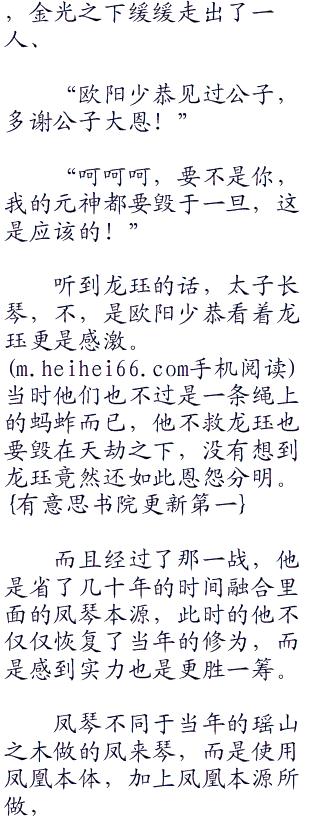 ，金光之下缓缓走出了一
人、
“欧阳少恭见过公子，
多谢公子大恩！”
“呵呵呵，要不是你，
我的元神都要毁于一旦，这
是应该的！”
听到龙珏的话，太子长
琴，不，是欧阳少恭看着龙
珏更是感激。
(m.heihei66.com手机阅读)
当时他们也不过是一条绳上
的蚂蚱而已，他不救龙珏也
要毁在天劫之下，没有想到
龙珏竟然还如此恩怨分明。
{有意思书院更新第一}
而且经过了那一战，他
是省了几十年的时间融合里
面的凤琴本源，此时的他不
仅仅恢复了当年的修为，而
是感到实力也是更胜一筹。
凤琴不同于当年的瑶山
之木做的凤来琴，而是使用
凤凰本体，加上凤凰本源所
做，